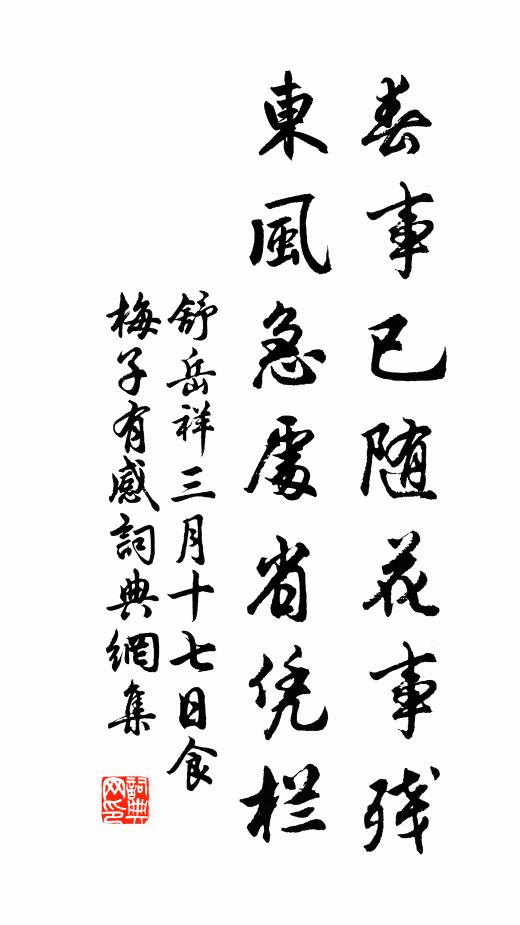 春事已随花事残
東風急處省凭栏
舒岳祥三月十七日食
梅子有感詞典網集
詞典
网印